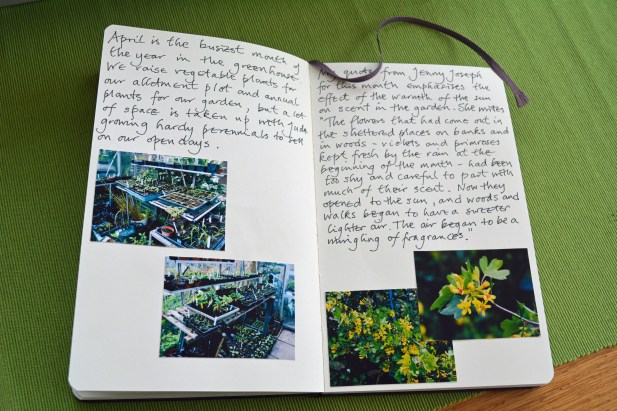 April is the busiest month of
the year in the greenhouse.
We raise vegetable plants for
our allotment plot and annual
plants for our garden, but a lot
of space is taken up with Judy
growing hardy perennials to sell
on our open days.
My quote from Jenny Joseph
for this month emphasises the
effect of the warmth of the sun
on scent in the garden. She writes
"The flowers that had come out in
the sheltered places on banks and
in woods - violets and primroses
kept fresh by the rain at the
beginning of the month - had been
too shy and careful to part with
much of their scent. Now they
opened to the sun, and woods and
walks began to have a sweeter
lighter air. The air began to be a
mingling of fragrances."